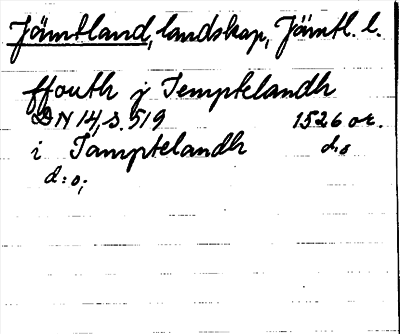 Jämtland, landskap, Jämtl. l.
ffouth j Temptelandh
DN 14, s. 519 1526 or.
i Tamptelandh d:o
d:o;